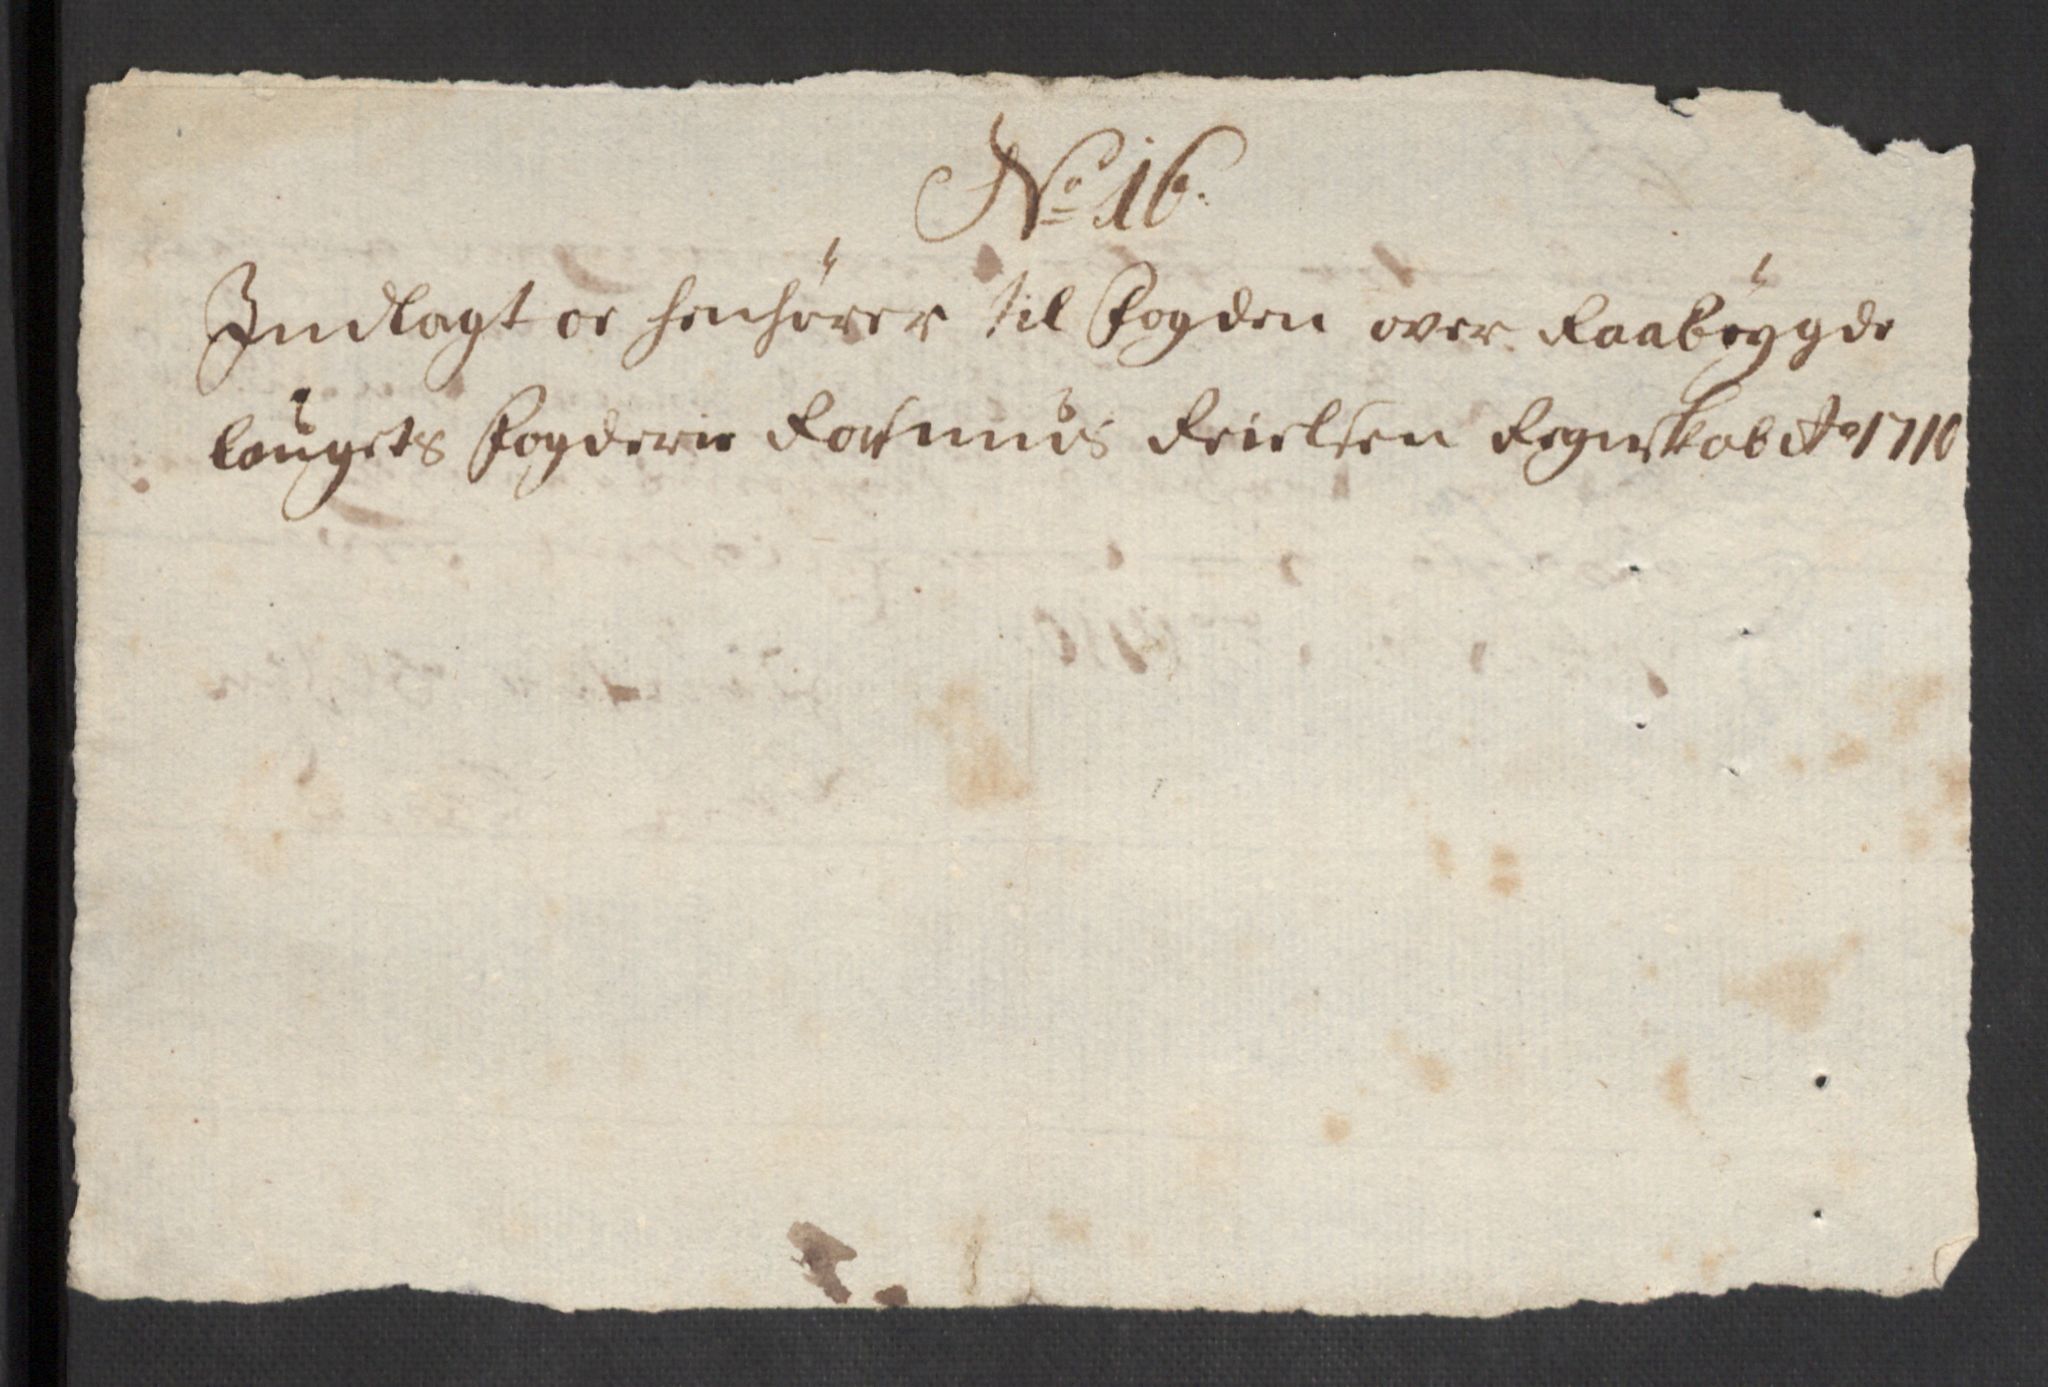 No 16.
Indlagt oc henhører til Fogden over Raabøygde
laugets Fogderie Rasmus Reielsen Regnskab Ao 1710